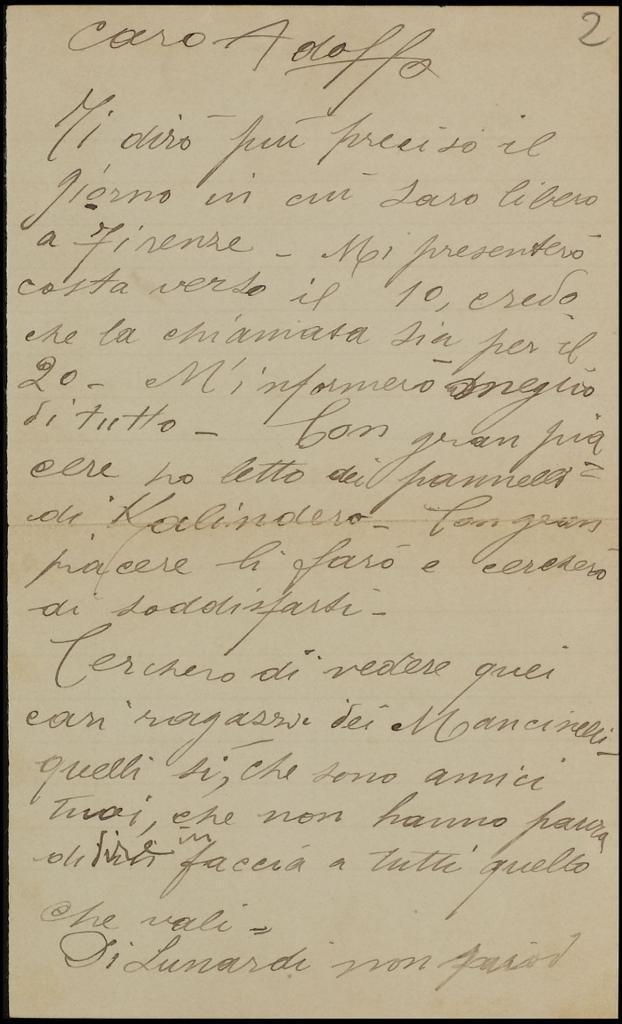 2
Caro Adolfo
Ti dirò più preciso il
giorno in cui sarò libero
a Firenze - Mi presenterò
costa verso il 10, credo
che la chiamata sia per il
20 - M'informerò meglio
di tutto - Con gran pia
cere ho letto dei pannelli
di Kalindero - Con gran
piacere li farò e cercherò
di soddisfarti -
Cercherò di vedere quei
cari ragazzi dei Mancinelli -
quelli sì, che sono amici
tuoi, che non hanno paura
di dire in faccia a tutti quello
che vali =
Di Lunardi non